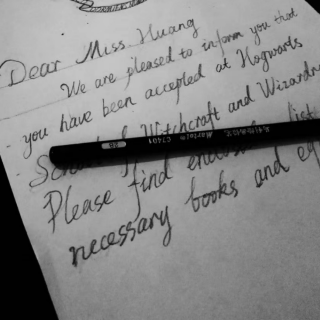 Dear Miss Huang
We are pleased to inform you that
you have been accepted at Hogwarts
School of Witchcraft and Wizardry
Please find list
necessary books and eq
Marco C7401
2B